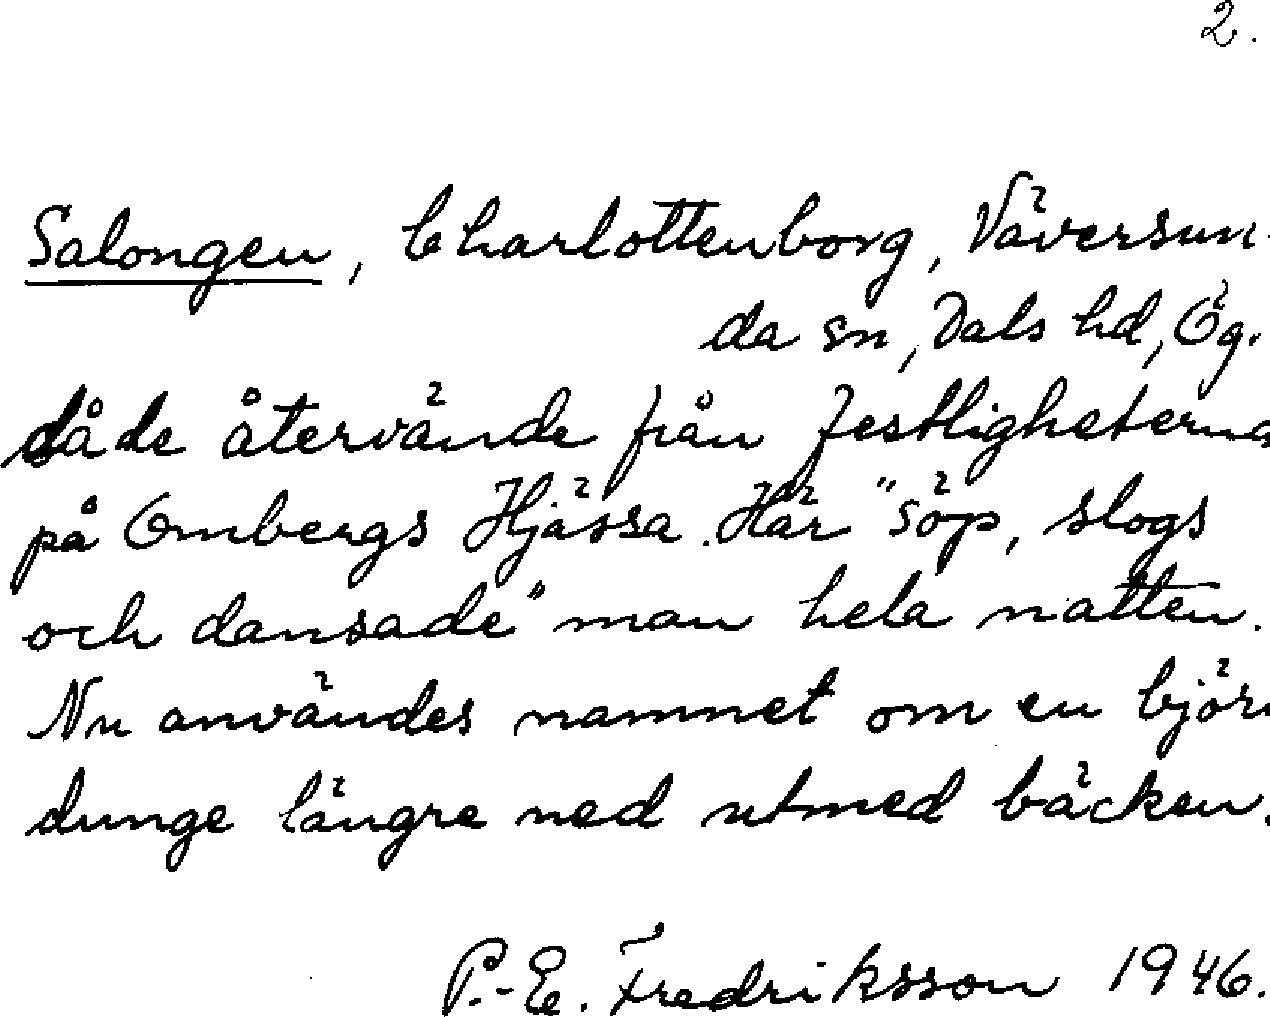 2.
Salongen, Charlottenborg, Väversun-
da sn, Dals hd, Ög.
då de återvände från festligheterna
på Ombergs Hjässa. Här "söp, slogs
och dansade" man hela natten.
Nu användes namnet om en björk
dunge längre ned utmed bäcken.
P.-E. Fredriksson 1946.